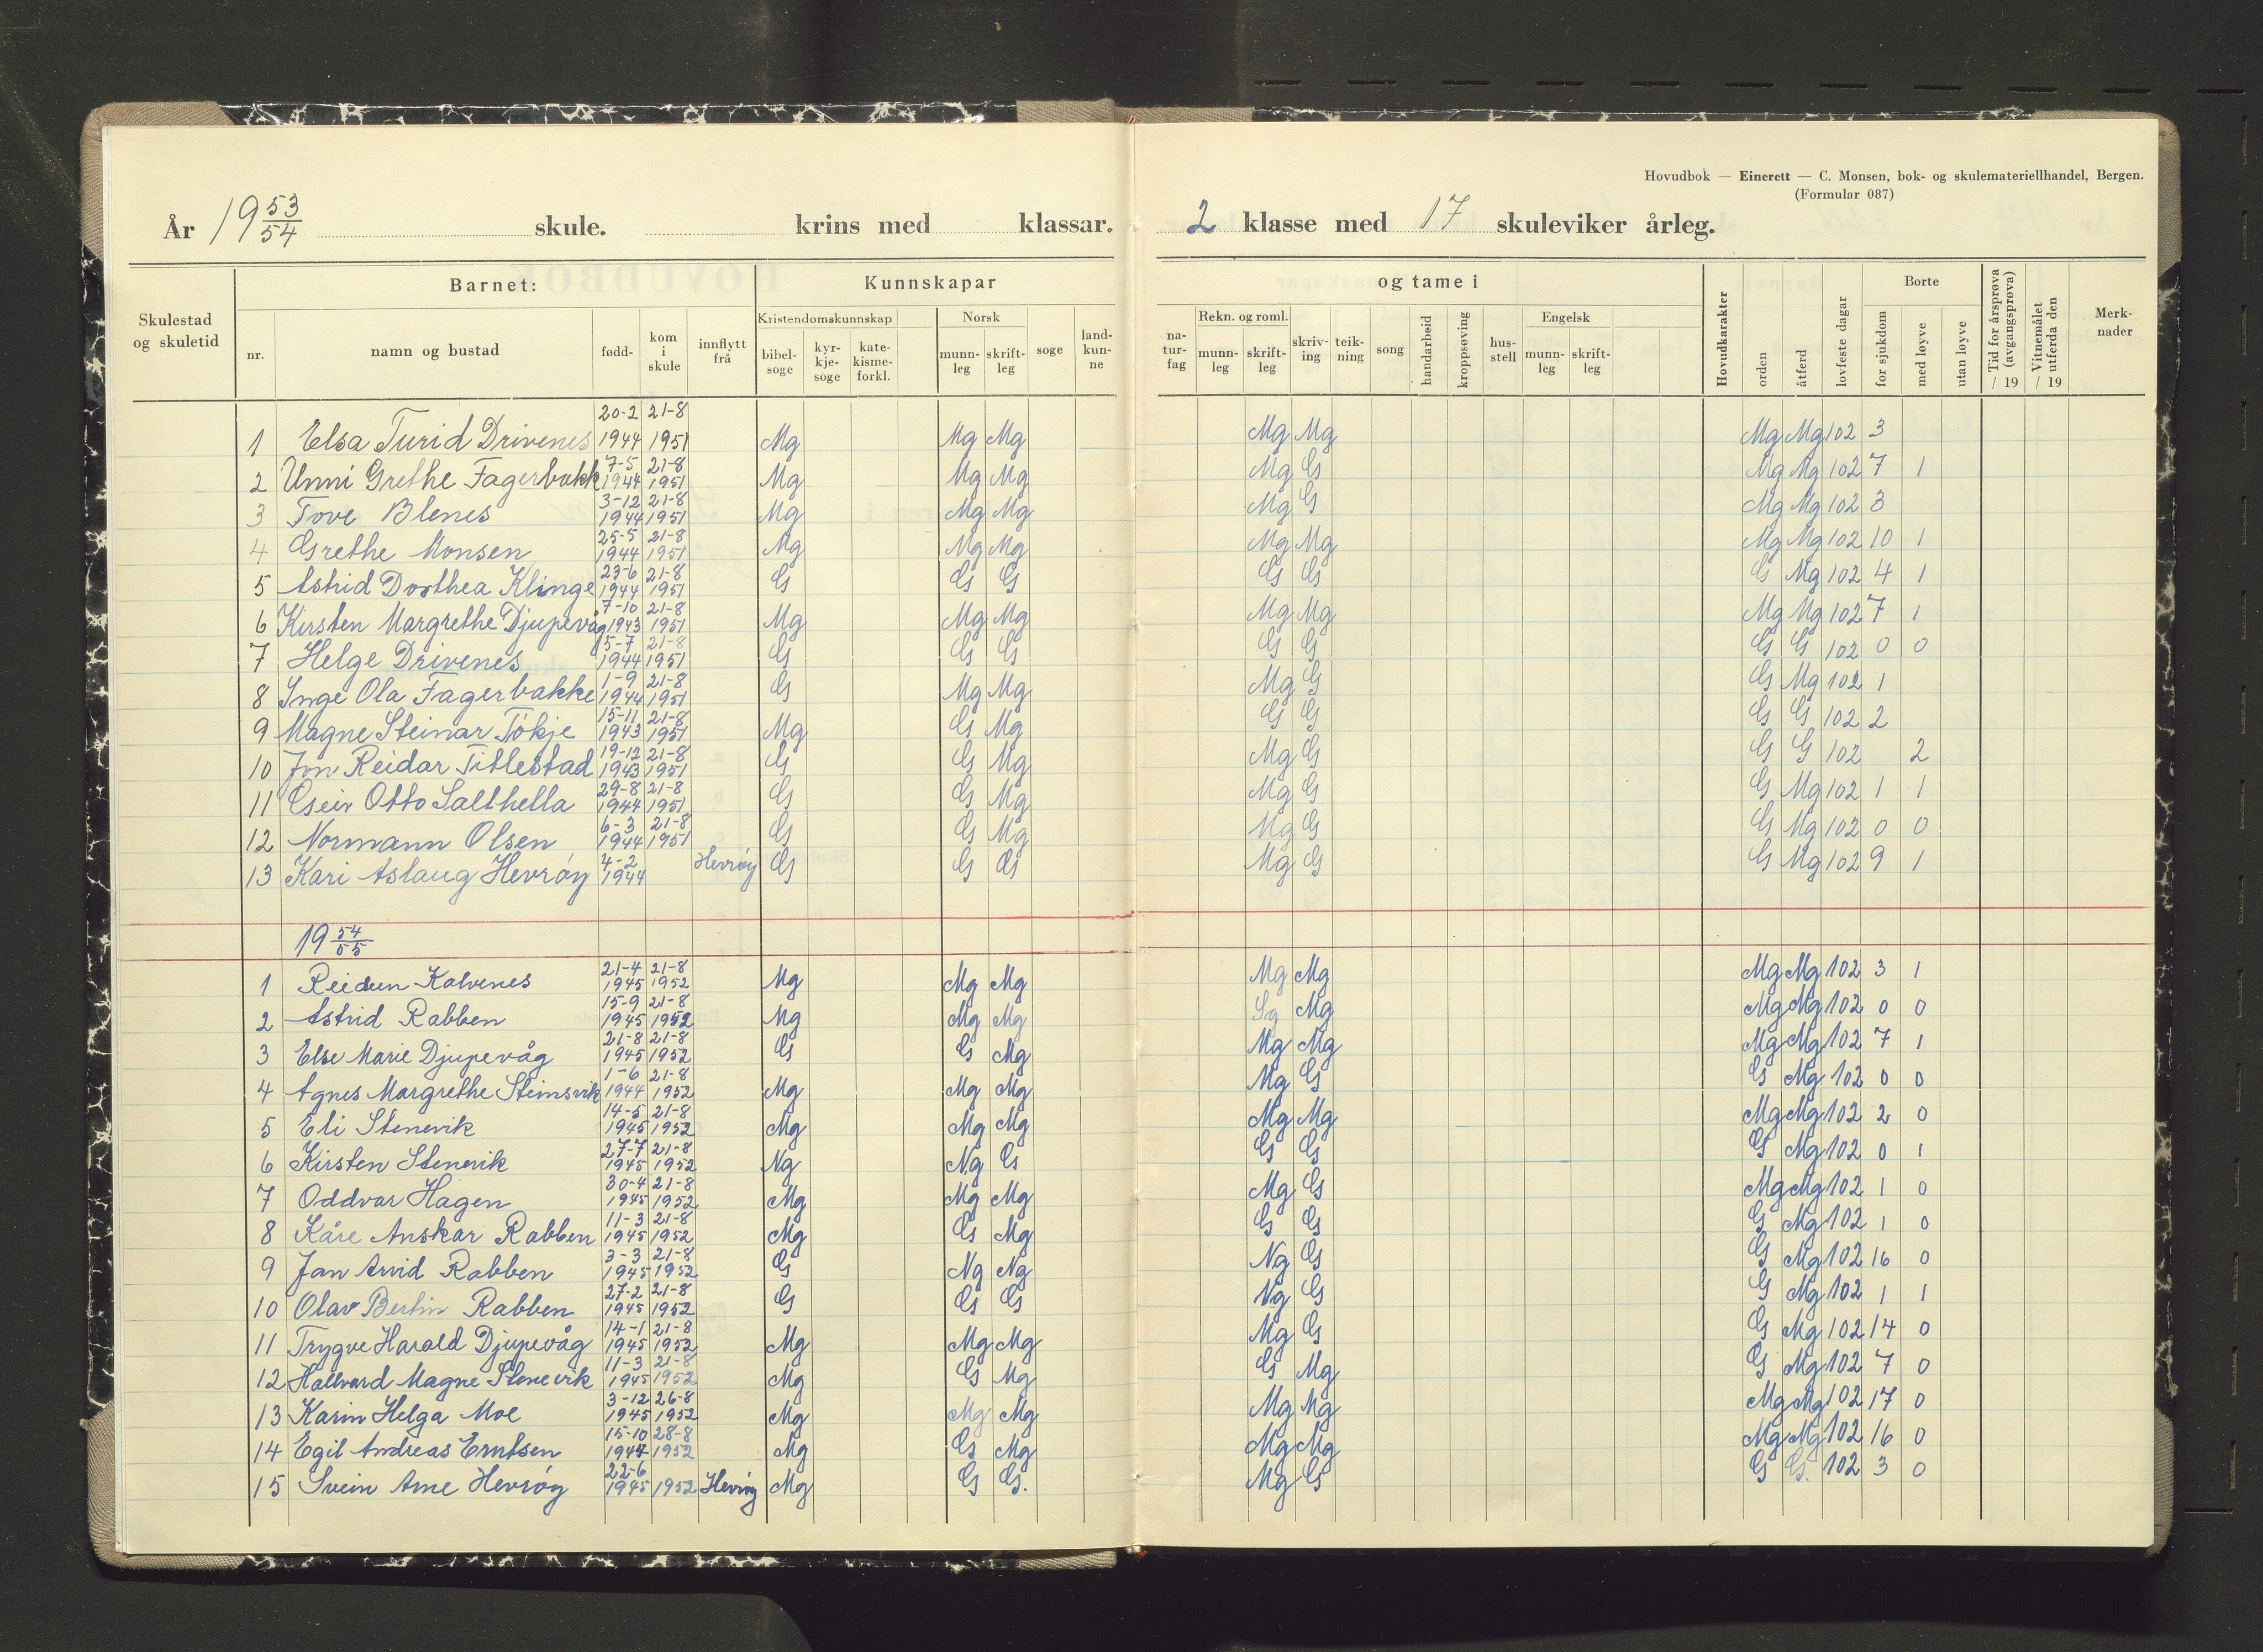 Hovudbok — Einerett — C. Monsen, bok- og skulemateriellhandel, Bergen.
(Formular 087)
År 19 53/54 skule. krins med klassar. 2 klasse med 17 skuleviker årleg.
Barnet: Kunnskapar og tame i
Skulestad og skuletid nr. namn og bustad fødd- kom i skule innflytt frå Kristendomskunnskap bibel-soge kyr-kje-soge kate-kisme-forkl. Norsk munn-leg skrift-leg soge land-kun-ne na-tur-fag Rekn. og roml. munn-leg skrift-leg skriv-ing teik-ning song handarbeid kroppsøving hus-stell Engelsk munn-leg skrift-leg Hovudkarakter orden åtferd lovfeste dagar Borte for sjukdom med løyve utan løyve Tid for årsprøva (avgangsprøva) / 19 Vitnemålet utferda den / 19 Merk-nader
1 Elsa Turid Drivenes 20-2 1944 21-8 1951 Mg Mg Mg Mg Mg Mg Mg 102 3
2 Unni Grethe Fagerbakk 7-5 1944 21-8 1951 Mg Mg Mg Mg G Mg Mg 102 7 1
3 Tove Blenes 3-12 1944 21-8 1951 Mg Mg Mg Mg G Mg Mg 102 3
4 Grethe Monsen 25-5 1944 21-8 1951 Mg Mg Mg Mg Mg Mg Mg 102 10 1
5 Astrid Dorthea Klinge 23-6 1944 21-8 1951 G G G G G G Mg 102 4 1
6 Kirsten Margrethe Djupevåg 7-10 1943 21-8 1951 Mg Mg Mg Mg Mg Mg Mg 102 7 1
7 Helge Drivenes 5-7 1944 21-8 1951 G G G G G G G 102 0 0
8 Inge Ola Fagerbakke 1-9 1944 21-8 1951 G Mg Mg Mg G G Mg 102 1
9 Magne Steinar Tökje 15-11 1943 21-8 1951 Mg G Mg G G G G 102 2
10 Jon Reidar Titlestad 19-12 1943 21-8 1951 G G Mg Mg G G G 102 2
11 Otto Salthella 29-8 1944 21-8 1951 G G Mg Mg G G Mg 102 1 1
12 Normann Olsen 6-3 1944 21-8 1951 G G Mg Mg G G Mg 102 0 0
13 Kari Aslaug Hevrøy 4-2 1944 Hevrøy G G G Mg G G Mg 102 9 1
19 54/55
1 Reidun Kalvenes 21-4 1945 21-8 1952 Mg Mg Mg Mg Mg Mg Mg 102 3 1
2 Astrid Rabben 15-9 1945 21-8 1952 Mg Mg Mg Sg Mg Mg Mg 102 0 0
3 Else Marie Djupevåg 21-8 1945 21-8 1952 G G Mg Mg Mg Mg Mg 102 7 1
4 Agnes Margrethe Steinsvik 1-6 1944 21-8 1952 Mg Mg Mg Mg G G Mg 102 0 0
5 Eli Stenevik 14-5 1945 21-8 1952 Mg Mg Mg Mg Mg Mg Mg 102 2 0
6 Kirsten Stenevik 27-7 1945 21-8 1952 Ng Ng G G G G Mg 102 0 1
7 Oddvar Hagen 30-4 1945 21-8 1952 Mg Mg Mg Mg G Mg Mg 102 1 0
8 Kåre Anskar Rabben 11-3 1945 21-8 1952 Mg G Mg G G G Mg 102 1 0
9 Jan Arvid Rabben 3-3 1945 21-8 1952 G Ng Ng Ng G G Mg 102 16 0
10 Olav Bertin Rabben 27-2 1945 21-8 1952 G G G Ng G G Mg 102 1 1
11 Trygve Harald Djupevåg 14-1 1945 21-8 1952 Mg Mg Mg Mg G G Mg 102 14 0
12 Hallvard Magne Stenevik 11-3 1945 21-8 1952 Mg G Mg G Mg G Mg 102 7 0
13 Karin Helga Moe 3-12 1945 26-8 1952 Mg Mg Mg Mg Mg Mg Mg 102 17 0
14 Egil Andreas Erntsen 15-10 1944 28-8 1952 Mg G Mg Mg Mg Mg Mg 102 16 0
15 Svein Arne Hevrøy 22-6 1945 1952 Hevrøy Mg G G. Mg G G G. 102 3 0